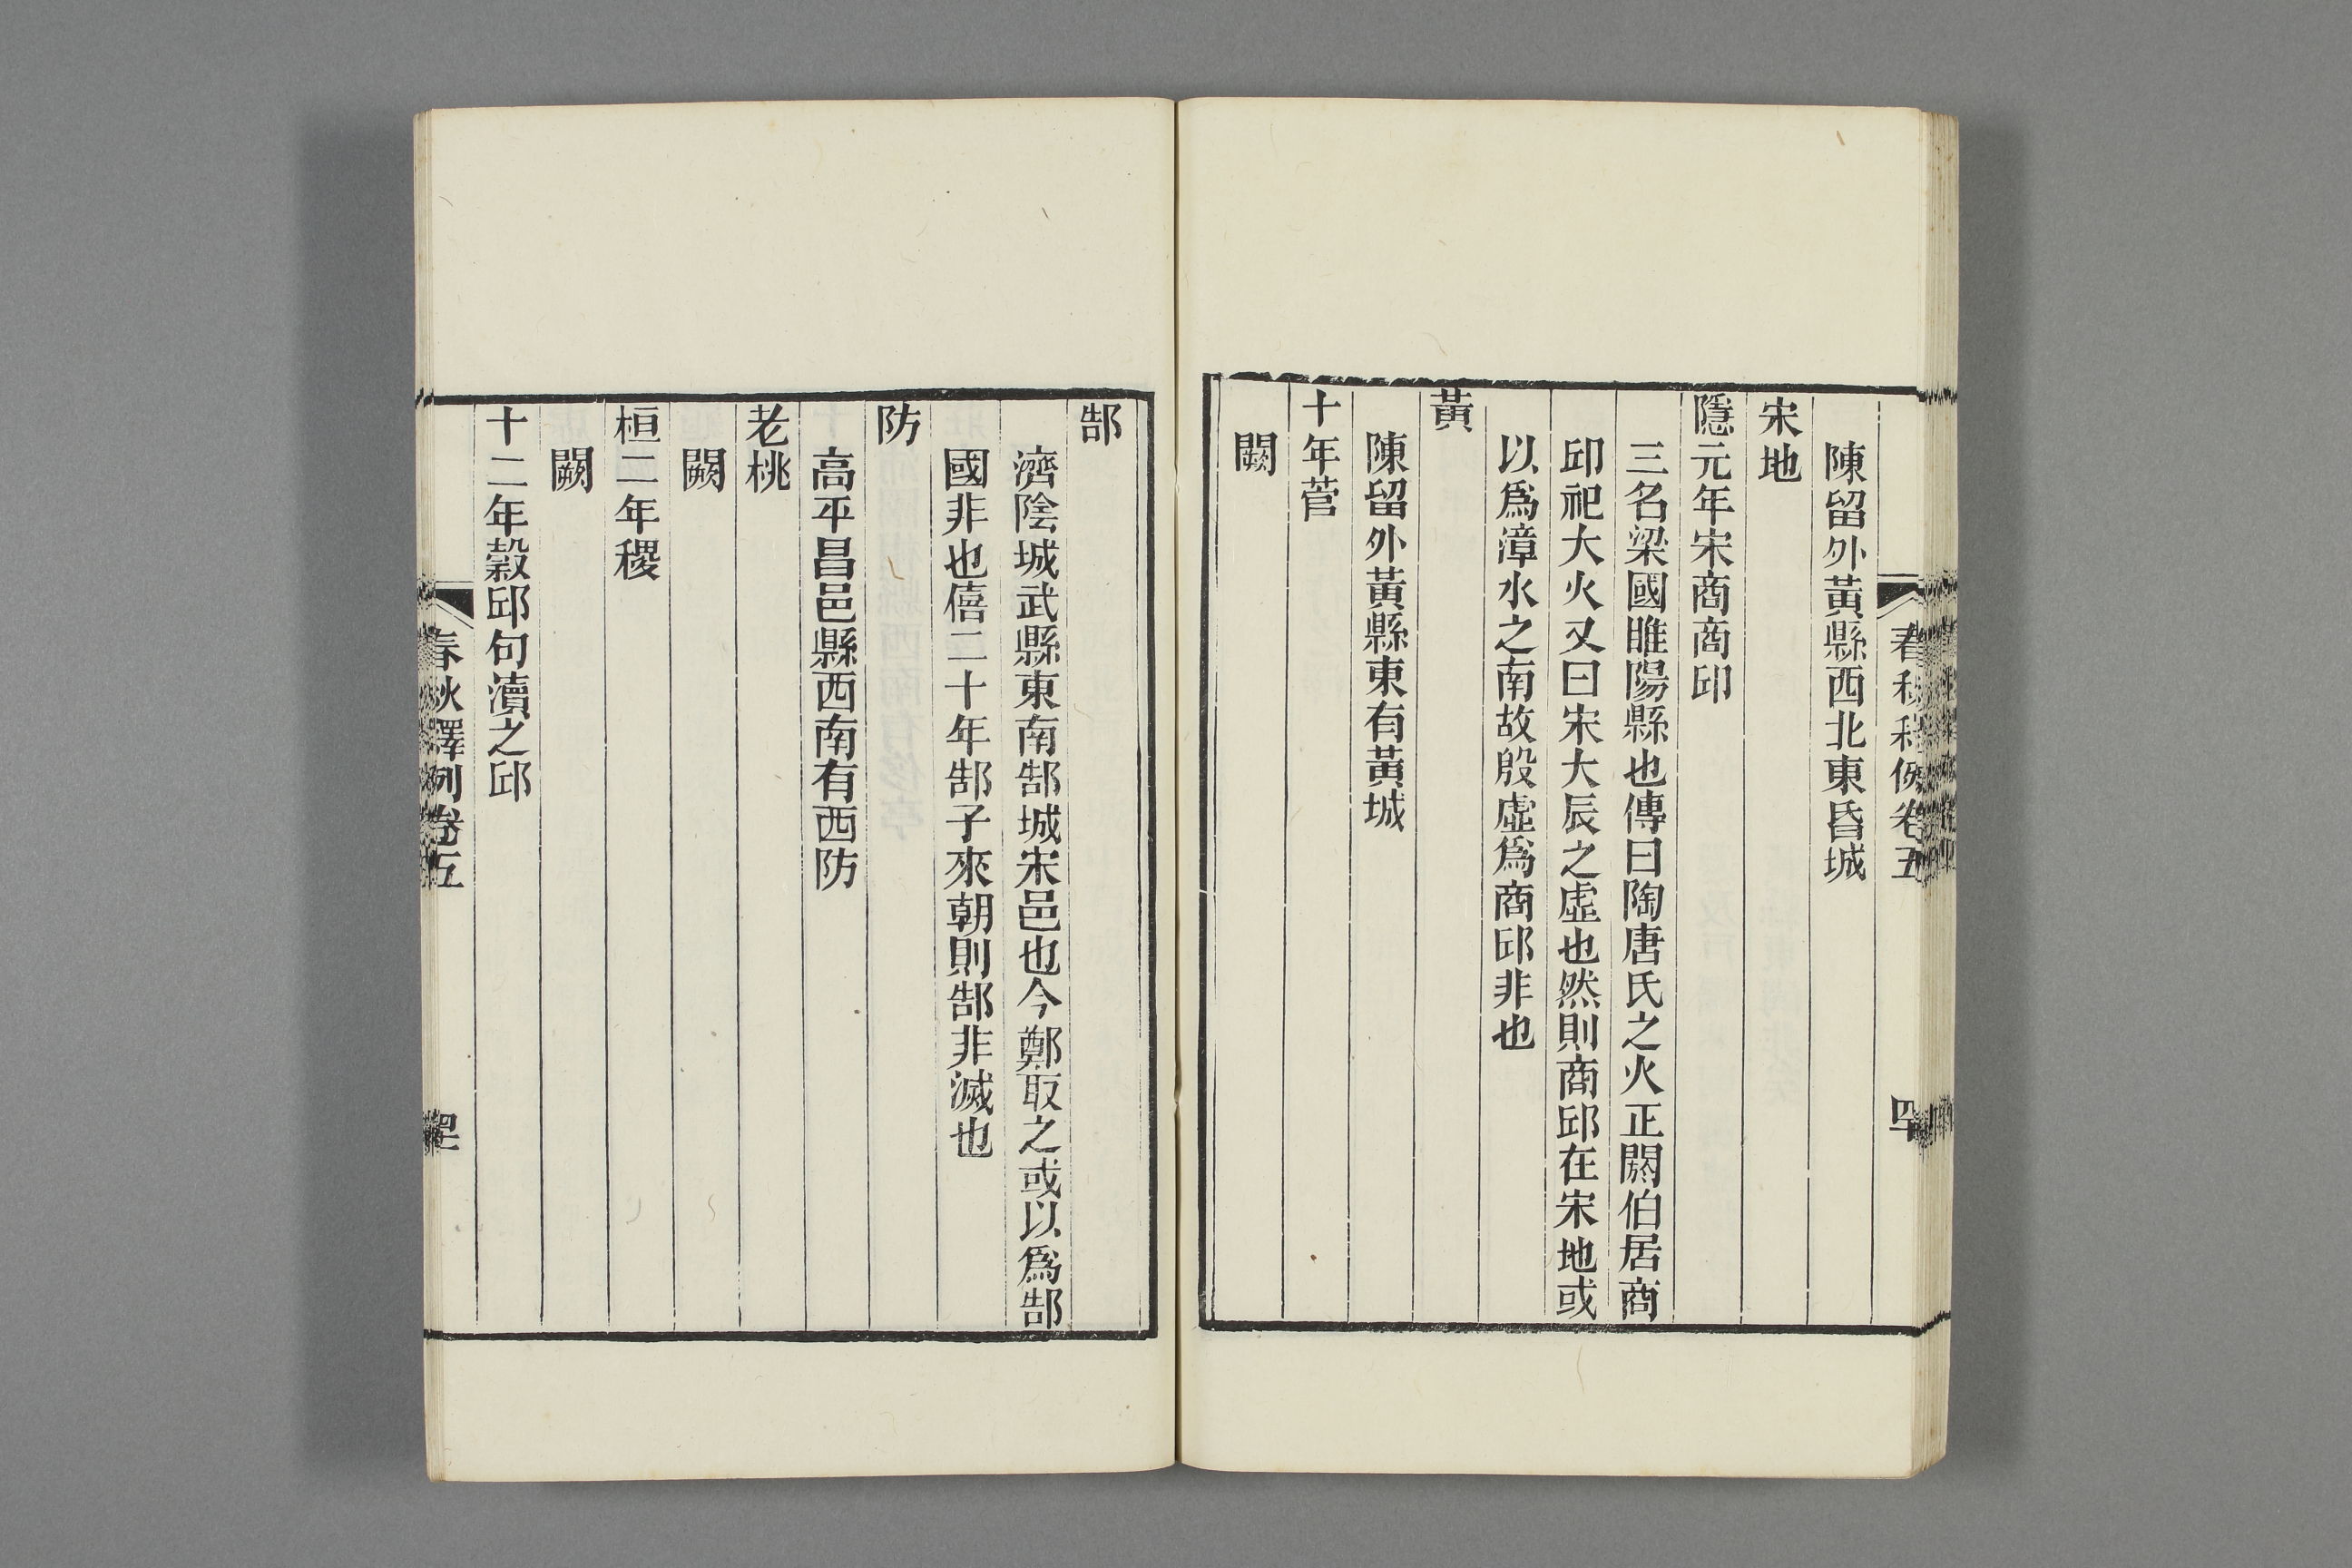 春秋釋例卷五
四十
陳留外黃縣西北東昏城
宋地
隱元年宋商商邱
三名梁國睢陽縣也傳曰陶唐氏之火正閼伯居商
邱祀大火又曰宋大辰之虛也然則商邱在宋地或
以爲漳水之南故殷虛爲商邱非也
黃
陳留外黃縣東有黃城
十年菅
闕
郜
濟陰城武縣東南郜城宋邑也今鄭取之或以爲郜
國非也僖二十年郜子來朝則郜非滅也
防
高平昌邑縣西南有西防
老桃
闕
桓二年稷
闕
十二年穀邱句瀆之邱
春秋釋例卷五